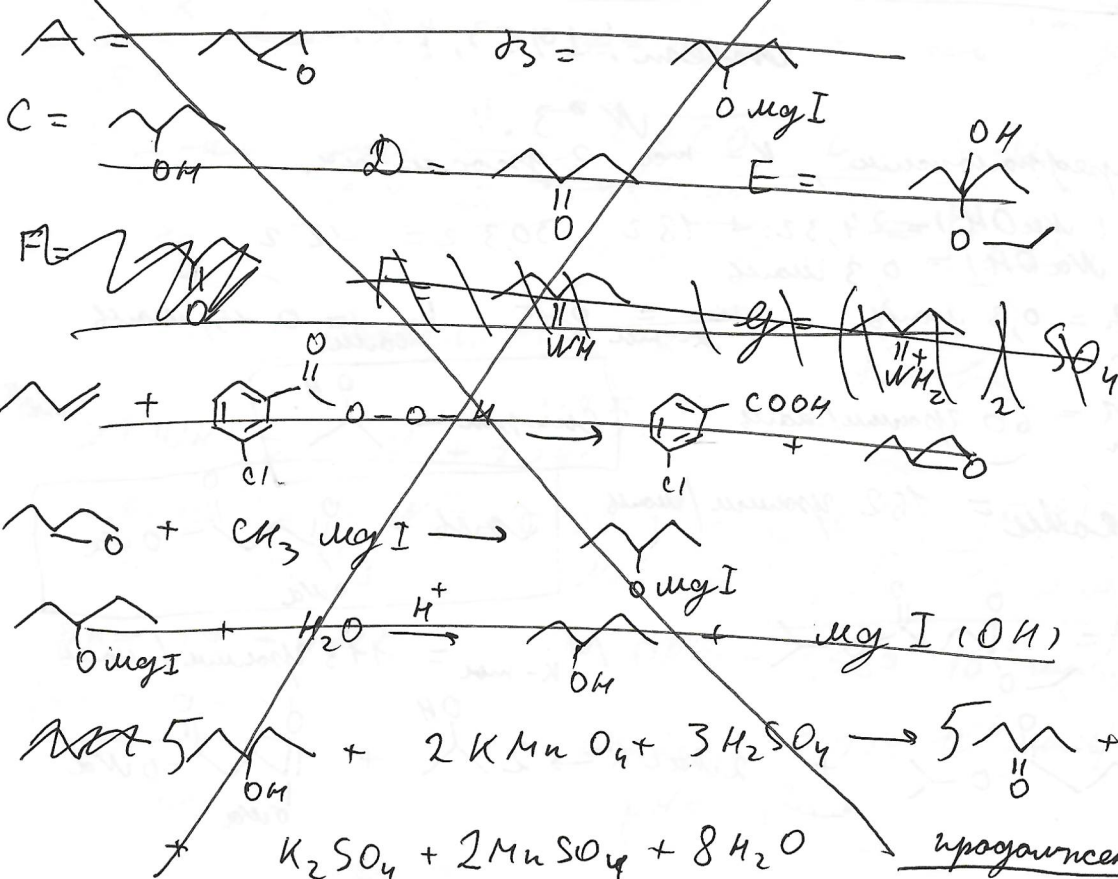 A = O B = O Mg I
C = OH D = O E = OH O
F = O F = NH G = ( NH2 + )2 SO4
+ O O-O-H Cl → COOH Cl + O
O + CH3 Mg I → O Mg I
O Mg I + H2O H+ → OH + Mg I (OH)
5 OH + 2 KMnO4 + 3H2SO4 → 5 O +
+ K2SO4 + 2MnSO4 + 8H2O